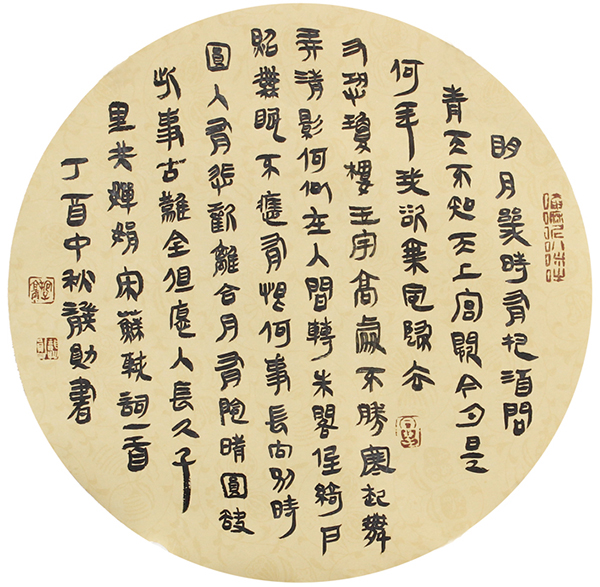 明月幾時有把酒問
青天不知天上宮闕今夕是
何年我欲乘風歸去
又恐瓊樓玉宇高處不勝寒起舞
弄清影何似在人間轉朱閣低綺戶
照無眠不應有恨何事長向別時
圓人有悲歡離合月有陰晴圓缺
此事古難全但願人長久千
里共嬋娟宋蘇軾詞一首
丁酉中秋發勛書